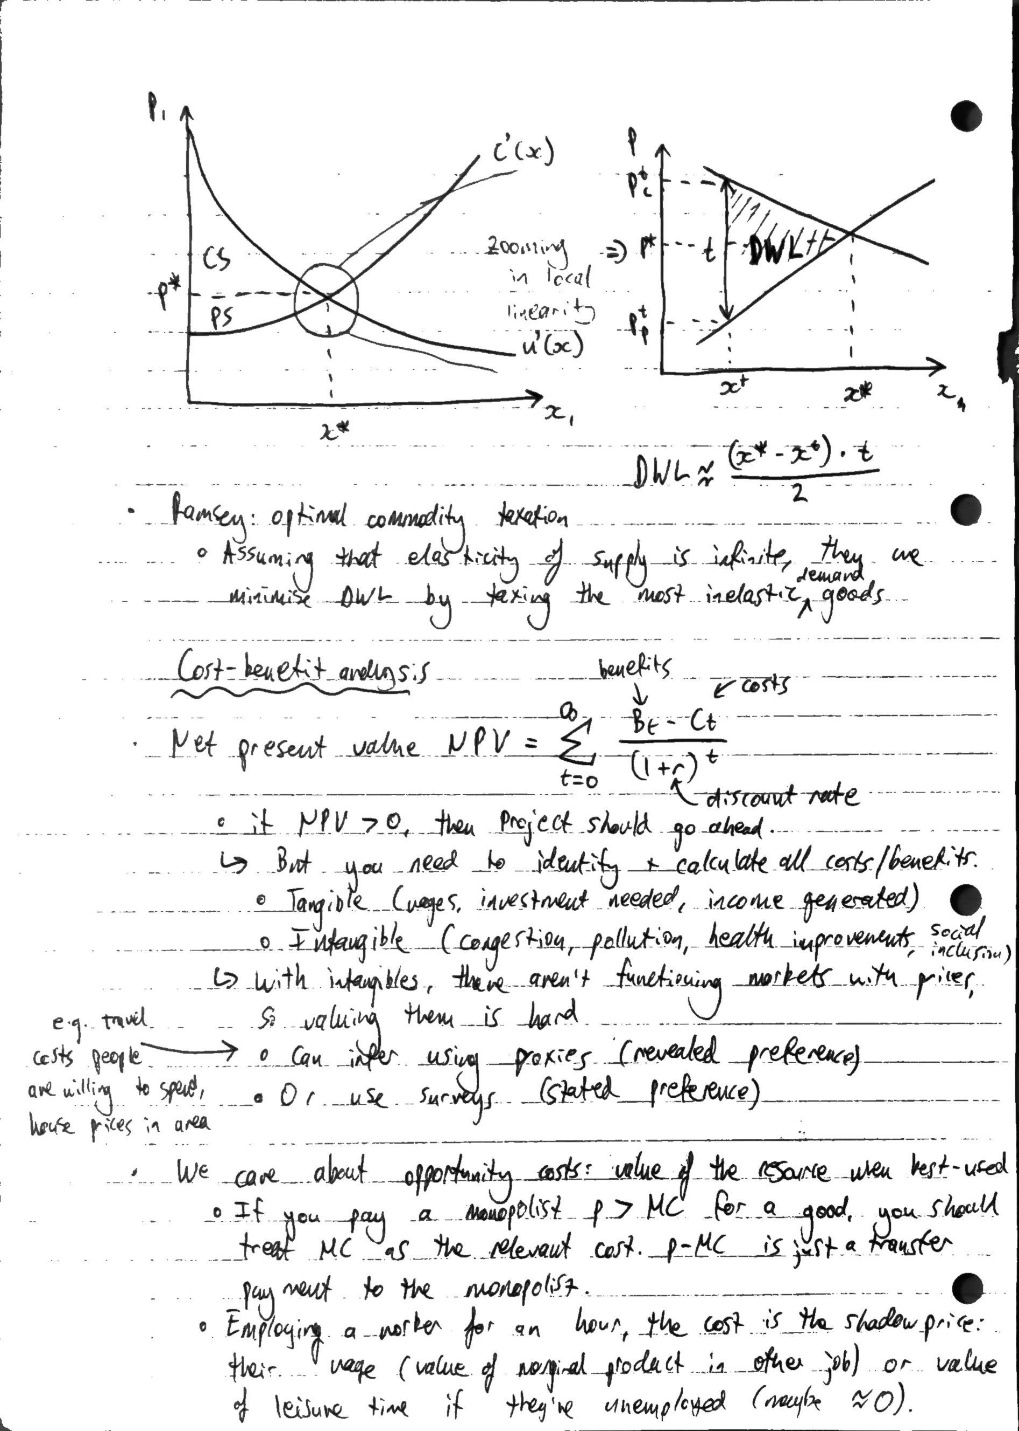 P₁
C'(x)
CS
P*
PS
u'(x)
x*
x₁
zooming
in local
linearity
⇒
P
Pᵗc
P*
t
DWL
Pᵗp
xᵗ
x*
DWL ≈ (x* - xᵗ) · t / 2
• Ramsey: optimal commodity taxation
∘ Assuming that elasticity of supply is infinite, they we
minimise DWL by taxing the most inelastic demand goods
Cost-benefit analysis
benefits
costs
• Net present value NPV = ∞ Σ t=0 Bt - Ct / (1+r)ᵗ
discount rate
∘ if NPV > 0, then project should go ahead.
↳ But you need to identify + calculate all costs/benefits.
∘ Tangible (wages, investment needed, income generated)
∘ Intangible (congestion, pollution, health improvements, social inclusion)
↳ With intangibles, there aren't functioning markets with prices,
so valuing them is hard
e.g. travel
costs people
are willing to spend,
house prices in area
∘ Can infer using proxies (revealed preference)
∘ Or use surveys (stated preference)
• We care about opportunity costs: value of the resource when best-used
∘ If you pay a monopolist p > MC for a good, you should
treat MC as the relevant cost. p-MC is just a transfer
payment to the monopolist.
∘ Employing a worker for an hour, the cost is the shadow price:
their wage (value of marginal product in other job) or value
of leisure time if they're unemployed (maybe ≈0).